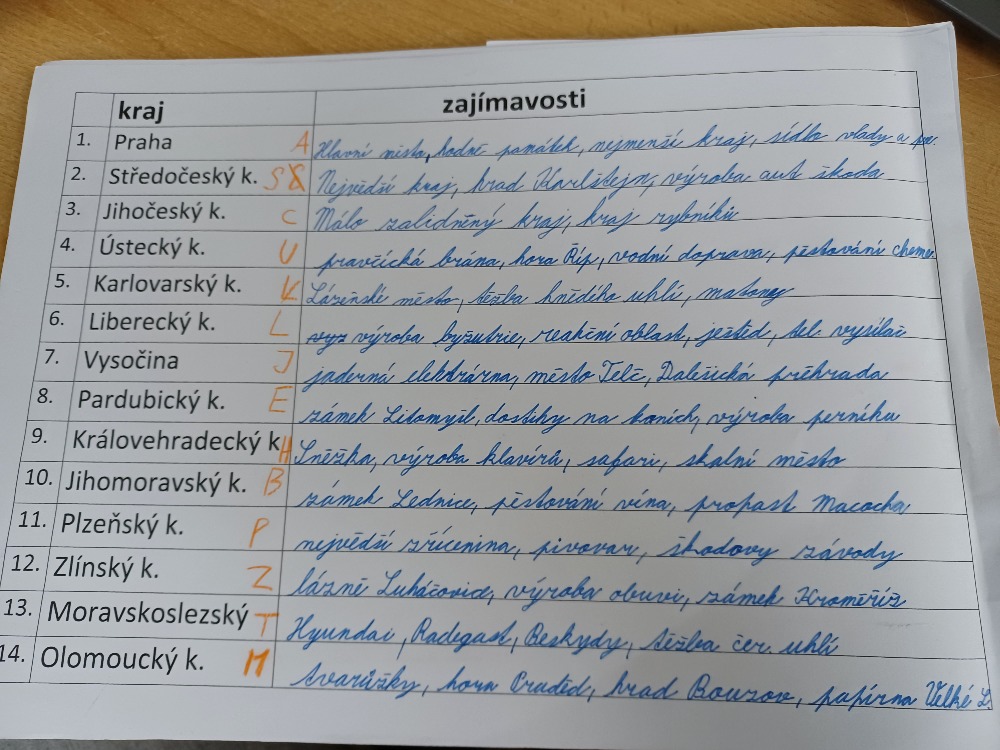 kraj zajímavosti
1. Praha A Hlavní místo, hodně památek, nejmenší kraj, sídlo vlady a
2. Středočeský k. S Nejvědší kraj, hrad Karlštejn, výroba aut škoda
3. Jihočeský k. C Málo zalidněný kraj, kraj rybníků
4. Ústecký k. U pravčická brána, hora Říp, vodní doprava, pěstování cheme
5. Karlovarský k. K Lázeňské město, těžba hnědého uhlí, matoney
6. Liberecký k. L výroba byžutrie, reakční oblast, ještěd, tel. vysílač
7. Vysočina J jaderná elekdrárna, město Telč, Dalešická přehrada
8. Pardubický k. E zámek Litomyšl, dostihy na koních, výroba perníku
9. Královehradecký k. H Sněžka, výroba klavírů, safari, skalní město
10. Jihomoravský k. B zámek Lednice, pěstování vína, propast Macocha
11. Plzeňský k. P nejvědší zřícenina, pivovar, škodovy závody
12. Zlínský k. Z lázně Luháčovice, výroba obuvi, zámek Kroměříž
13. Moravskoslezský T Hyundai, Radegast, Beskydy, těžba čer. uhlí
14. Olomoucký k. M tvarůžky, hora Praděd, hrad Bouzov, papírna Velké L.